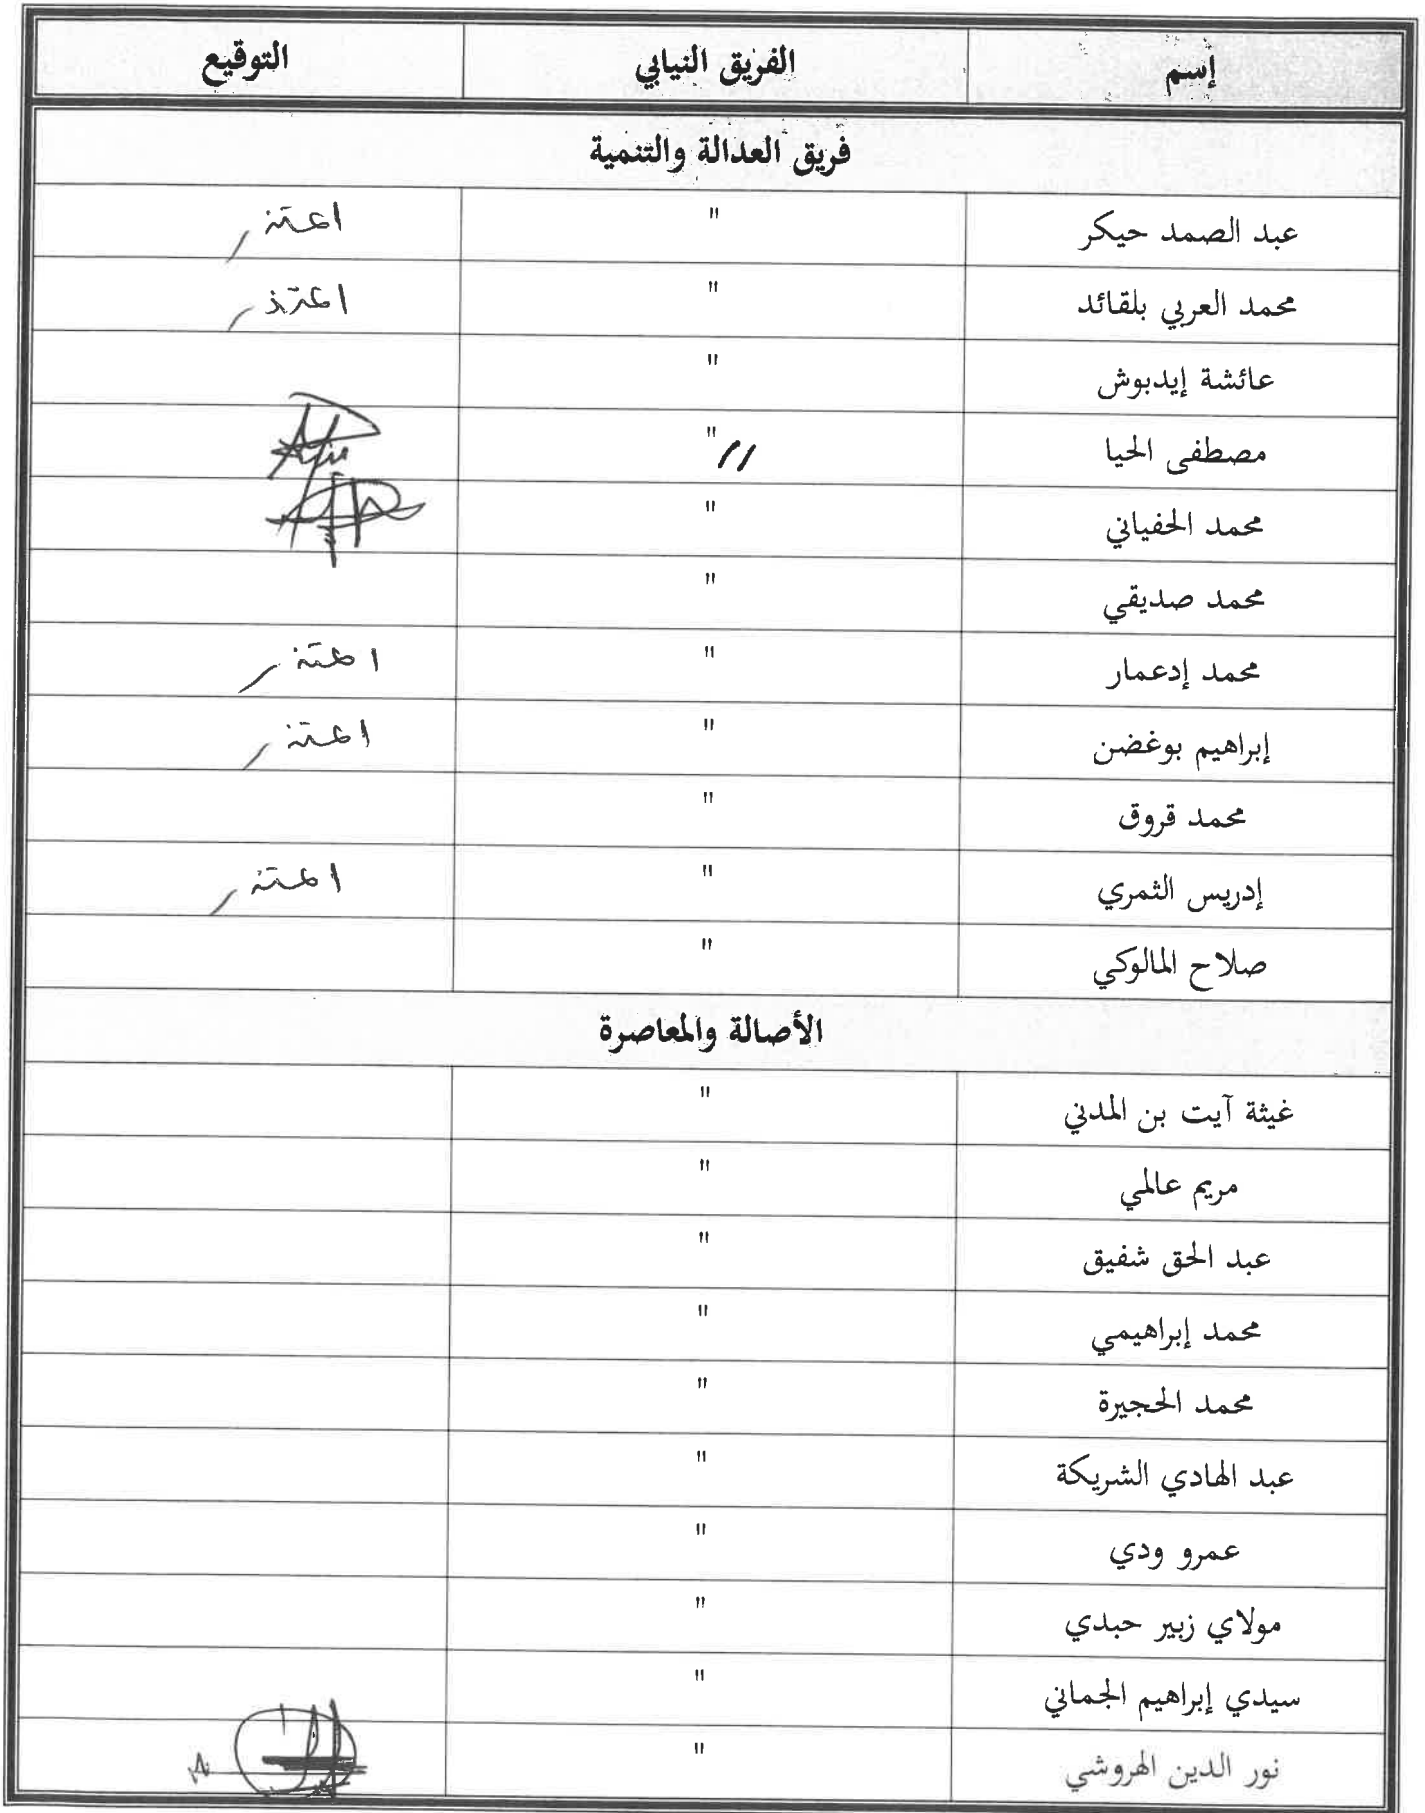 إسم الفريق النيابي التوقيع
فريق العدالة والتنمية
عبد الصمد حيكر " اعتذر
محمد العربي بلقائد " اعتذر
عائشة إيدبوش "
مصطفى الحيا " //
محمد الحفياني "
محمد صديقي "
محمد إدعمار " اعتذر
إبراهيم بوغضن " اعتذر
محمد قروق "
إدريس الثمري " اعتذر
صلاح المالوكي "
الأصالة والمعاصرة
غيثة آيت بن المدني "
مريم عالمي "
عبد الحق شفيق "
محمد إبراهيمي "
محمد الحجيرة "
عبد الهادي الشريكة "
عمرو ودي "
مولاي زبير حبدي "
سيدي إبراهيم الجماني "
نور الدين الهروشي "